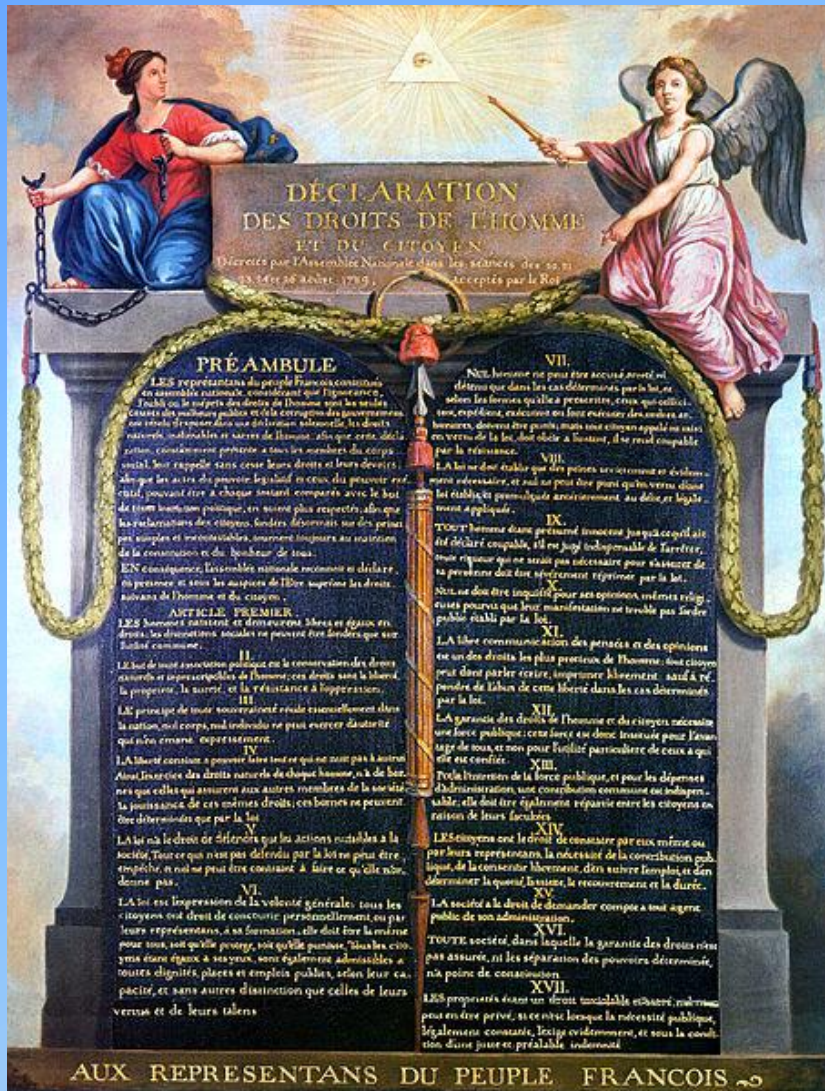 DÉCLARATION
DES DROITS DE L'HOMME
ET DU CITOYEN,
Décretés par l'Assemblée Nationale dans les séances des 20, 21
23, 24 et 26 août, 1789, acceptés par le Roi
PRÉAMBULE
LES représentans du peuple François, constitués
en assemblée nationale, considérant que l'ignorance,
l'oubli ou le mépris des droits de l'homme sont les seules
causes des malheurs publics et de la corruption des gouvernemens
ont résolu d'exposer dans une déclaration solemnelle, les droits
naturels, inaliénables et sacrés de l'homme; afin que cette décla
ration, constamment présente à tous les membres du corps
social, leur rappelle sans cesse leurs droits et leurs devoirs;
afin que les actes du pouvoir législatif et ceux du pouvoir exé
cutif, pouvant être à chaque instant comparés avec le but
de toute institution politique, en soient plus respectés; afin que
les reclamations des citoyens, fondées désormais sur des principes
simples et incontestables, tournent toujours au maintien
de la constitution et du bonheur de tous.
EN conséquence, l'assemblée nationale reconnoit et déclare
en présence et sous les auspices de l'Etre suprême les droits
suivans de l'homme et du citoyen.
ARTICLE PREMIER.
LES hommes naissent et demeurent libres et égaux en
droits; les distinctions sociales ne peuvent être fondées que sur
l'utilité commune.
II.
LE but de toute association politique est la conservation des droits
naturels et imprescriptibles de l'homme; ces droits sont la liberté,
la propriété, la sureté, et la résistance à l'oppression.
III.
LE principe de toute souveraineté réside essentiellement dans
la nation, nul corps, nul individu ne peut exercer d'autorité
qui n'en émane expressement.
IV.
LA liberté consiste à pouvoir faire tout ce qui ne nuit pas à autrui
Ainsi, l'exercice des droits naturels de chaque homme, n'a de bor
nes que celles qui assurent aux autres membres de la société
la jouissance de ces mêmes droits; ces bornes ne peuvent
être déterminées que par la loi
V.
LA loi n'a le droit de défendre que les actions nuisibles à la
société, Tout ce qui n'est pas défendu par la loi ne peut être
empêché, et nul ne peut être contraint à faire ce qu'elle n'or-
donne pas.
VI.
LA loi est l'expression de la volonté générale; tous les
citoyens ont droit de concourir personnellement, ou par
leurs représentans, à sa formation; elle doit être la même
pour tous, soit qu'elle protege, soit qu'elle punisse, Tous les cito-
yens étant égaux à ses yeux, sont également admissibles à
toutes dignités, places et emplois publics, selon leur ca-
pacité, et sans autres distinction que celles de leurs
vertus et de leurs talens
VII.
NUL homme ne peut être accusé, arreté ni
détenu que dans les cas déterminés par la loi, et
selon les formes qu'elle a prescrites, ceux qui sollici-
tent, expédient, exécutent ou font exécuter des ordres ar-
bitraires, doivent être punis; mais tout citoyen appelé ou saisi
en vertu de la loi, doit obéir à l'instant, il se rend coupable
par la résistance.
VIII.
LA loi ne doit établir que des peines strictement et évidem-
ment nécessaire, et nul ne peut être puni qu'en vertu d'une
loi établie et promulguée antérieurement au délit, et légale-
ment appliquée.
IX.
TOUT homme étant présumé innocent jusqu'à ce qu'il ait
été déclaré coupable, s'il est jugé indispensable de l'arrêter,
toute rigueur qui ne serait pas nécessaire pour s'assurer de
sa personne doit être sévèrement réprimée par la loi.
X.
NUL ne doit être inquiété pour ses opinions, mêmes religi-
euses pourvu que leur manifestation ne trouble pas l'ordre
public établi par la loi.
XI.
LA libre communication des pensées et des opinions
est un des droits les plus precieux de l'homme; tout citoyen
peut donc parler écrire, imprimer librement, sauf à ré-
pondre de l'abus de cette liberté dans les cas déterminés
par la loi.
XII.
LA garantie des droits de l'homme et du citoyen nécessite
une force publique; cette force est donc instituée pour l'avan
tage de tous, et non pour l'utilité particuliere de ceux à qui
elle est confiée.
XIII.
POUR l'entretien de la force publique, et pour les dépenses
d'administration, une contribution commune est indispen-
sable; elle doit être également répartie entre les citoyens en
raison de leurs facultées
XIV.
LES citoyens ont le droit de constater par eux même ou
par leurs représentans, la nécessité de la contribution pub-
lique, de la consentir librement, d'en suivre l'emploi, et d'en
déterminer la quotité, l'assiette, le recouvrement et la durée.
XV.
LA société a le droit de demander compte à tout agent
public de son administration.
XVI.
TOUTE société, dans laquelle la garantie des droits n'est
pas assurée, ni les séparation des pouvoirs déterminée,
n'a point de constitution
XVII.
LES propriétés étant un droit inviolable et sacré, nul ne
peut en être privé, si ce n'est lorsque la nécessité publique,
légalement constatée, l'exige evidemment, et sous la condi-
tion d'une juste et préalable indemnité
AUX REPRESENTANS DU PEUPLE FRANCOIS